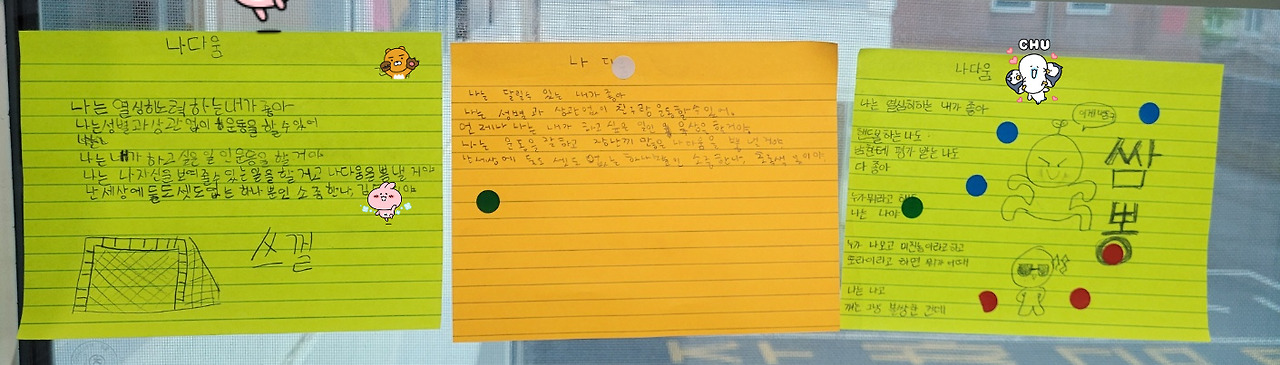 나다움
나는 열심히 노력하는 내가 좋아
나는 성별과 상관 없이 운동을 할 수 있어
나는 내가 하고 싶은 일인 운동을 할 거야
나는 나 자신을 보여줄 수 있는 일을 할 거고 나다움을 뽐낼 거야
난 세상에 둘도 셋도 없는 하나 뿐인 소중한 나,
스낄
나 다
나는 달릴수 있는 내가 좋아
나는 성별 과 상관 없이 운동할 수 있어.
언제나 나는 내가 하고 싶은 일인 육상을 할거야
나는 운동을 잘 하고 장난끼 많은 나다움을 뽐낼거야
난 세상에 둘도 셋도 없는 하나뿐인 소중한 나,
CHU
나다움
나는 열심히하는 내가 좋아
하는 나도
받는 나도
다 좋아
누가 뭐라고 해도
나는 나야
누가 나보고 미친놈이라고 하고
또라이라고 하면 뭐 어때
나는 나고
걔는 그냥 불쌍한 건데
쌈
뽕